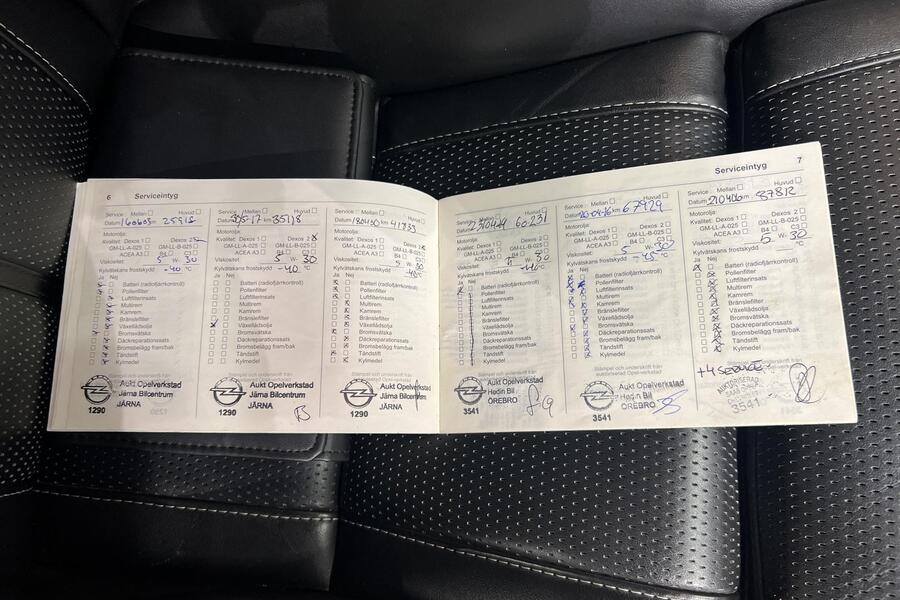 6 Serviceintyg
Service: Mellan Huvud
Datum 160605 km 25915
Motorolja:
Kvalitet: Dexos 1 Dexos 2
GM-LL-A-025 GM-LL-B-025
ACEA A3 B4 C3
Viskositet: 5 W- 30
Kylvätskans frostskydd -40 °C
Ja Nej
Batteri (radiofjärrkontroll)
Pollenfilter
Luftfilterinsats
Multirem
Kamrem
Bränslefilter
Växellådsolja
Bromsvätska
Däckreparationssats
Bromsbelägg fram/bak
Tändstift
Kylmedel
Aukt Opelverkstad
Järna Bilcentrum
1290 JÄRNA
Service: Mellan Huvud
Datum km 35118
Motorolja:
Kvalitet: Dexos 1 Dexos 2
GM-LL-A-025 GM-LL-B-025
ACEA A3 B4 C3
Viskositet: 5 W- 30
Kylvätskans frostskydd -40 °C
Ja Nej
Batteri (radiofjärrkontroll)
Pollenfilter
Luftfilterinsats
Multirem
Kamrem
Bränslefilter
Växellådsolja
Bromsvätska
Däckreparationssats
Bromsbelägg fram/bak
Tändstift
Kylmedel
Stämpel och underskrift från
auktoriserad Opel-verkstad
Aukt Opelverkstad
Järna Bilcentrum
1290 JÄRNA
Service: Mellan Huvud
Datum 180430 km 41833
Motorolja:
Kvalitet: Dexos 1 Dexos 2
GM-LL-A-025 GM-LL-B-025
ACEA A3 B4 C3
Viskositet: 5 W- 30
Kylvätskans frostskydd
Ja Nej
Batteri (radiofjärrkontroll)
Pollenfilter
Luftfilterinsats
Multirem
Kamrem
Bränslefilter
Växellådsolja
Bromsvätska
Däckreparationssats
Bromsbelägg fram/bak
Tändstift
Kylmedel
Aukt Opelverkstad
Järna Bilcentrum
1290 JÄRNA
Serviceintyg 7
Service: Mellan Huvud
Datum km 60231
Motorolja:
Kvalitet: Dexos 1 Dexos 2
GM-LL-A-025 GM-LL-B-025
ACEA A3 B4 C3
Viskositet: 5 W- 30
Kylvätskans frostskydd
Ja Nej
Batteri (radiofjärrkontroll)
Pollenfilter
Luftfilterinsats
Multirem
Kamrem
Bränslefilter
Växellådsolja
Bromsvätska
Däckreparationssats
Bromsbelägg fram/bak
Tändstift
Kylmedel
Aukt Opelverkstad
Hedin Bil
3541 ÖREBRO
Service: Mellan Huvud
Datum 20-04-16 km 67929
Motorolja:
Kvalitet: Dexos 1 Dexos 2
GM-LL-A-025 GM-LL-B-025
ACEA A3 B4 C3
Viskositet: 5 W- 30
Kylvätskans frostskydd -45 °C
Ja Nej
Batteri (radiofjärrkontroll)
Pollenfilter
Luftfilterinsats
Multirem
Kamrem
Bränslefilter
Växellådsolja
Bromsvätska
Däckreparationssats
Bromsbelägg fram/bak
Tändstift
Kylmedel
Aukt Opelverkstad
Hedin Bil
ÖREBRO
3541
Service: Mellan Huvud
Datum 210406 km 87812
Motorolja:
Kvalitet: Dexos 1 Dexos 2
GM-LL-A-025 GM-LL-B-025
ACEA A3 B4 C3
Viskositet: 5 W- 30
Kylvätskans frostskydd °C
Ja Nej
Batteri (radiofjärrkontroll)
Pollenfilter
Luftfilterinsats
Multirem
Kamrem
Bränslefilter
Växellådsolja
Bromsvätska
Däckreparationssats
Bromsbelägg fram/bak
Tändstift
Kylmedel
AUKTORISERAD
3541